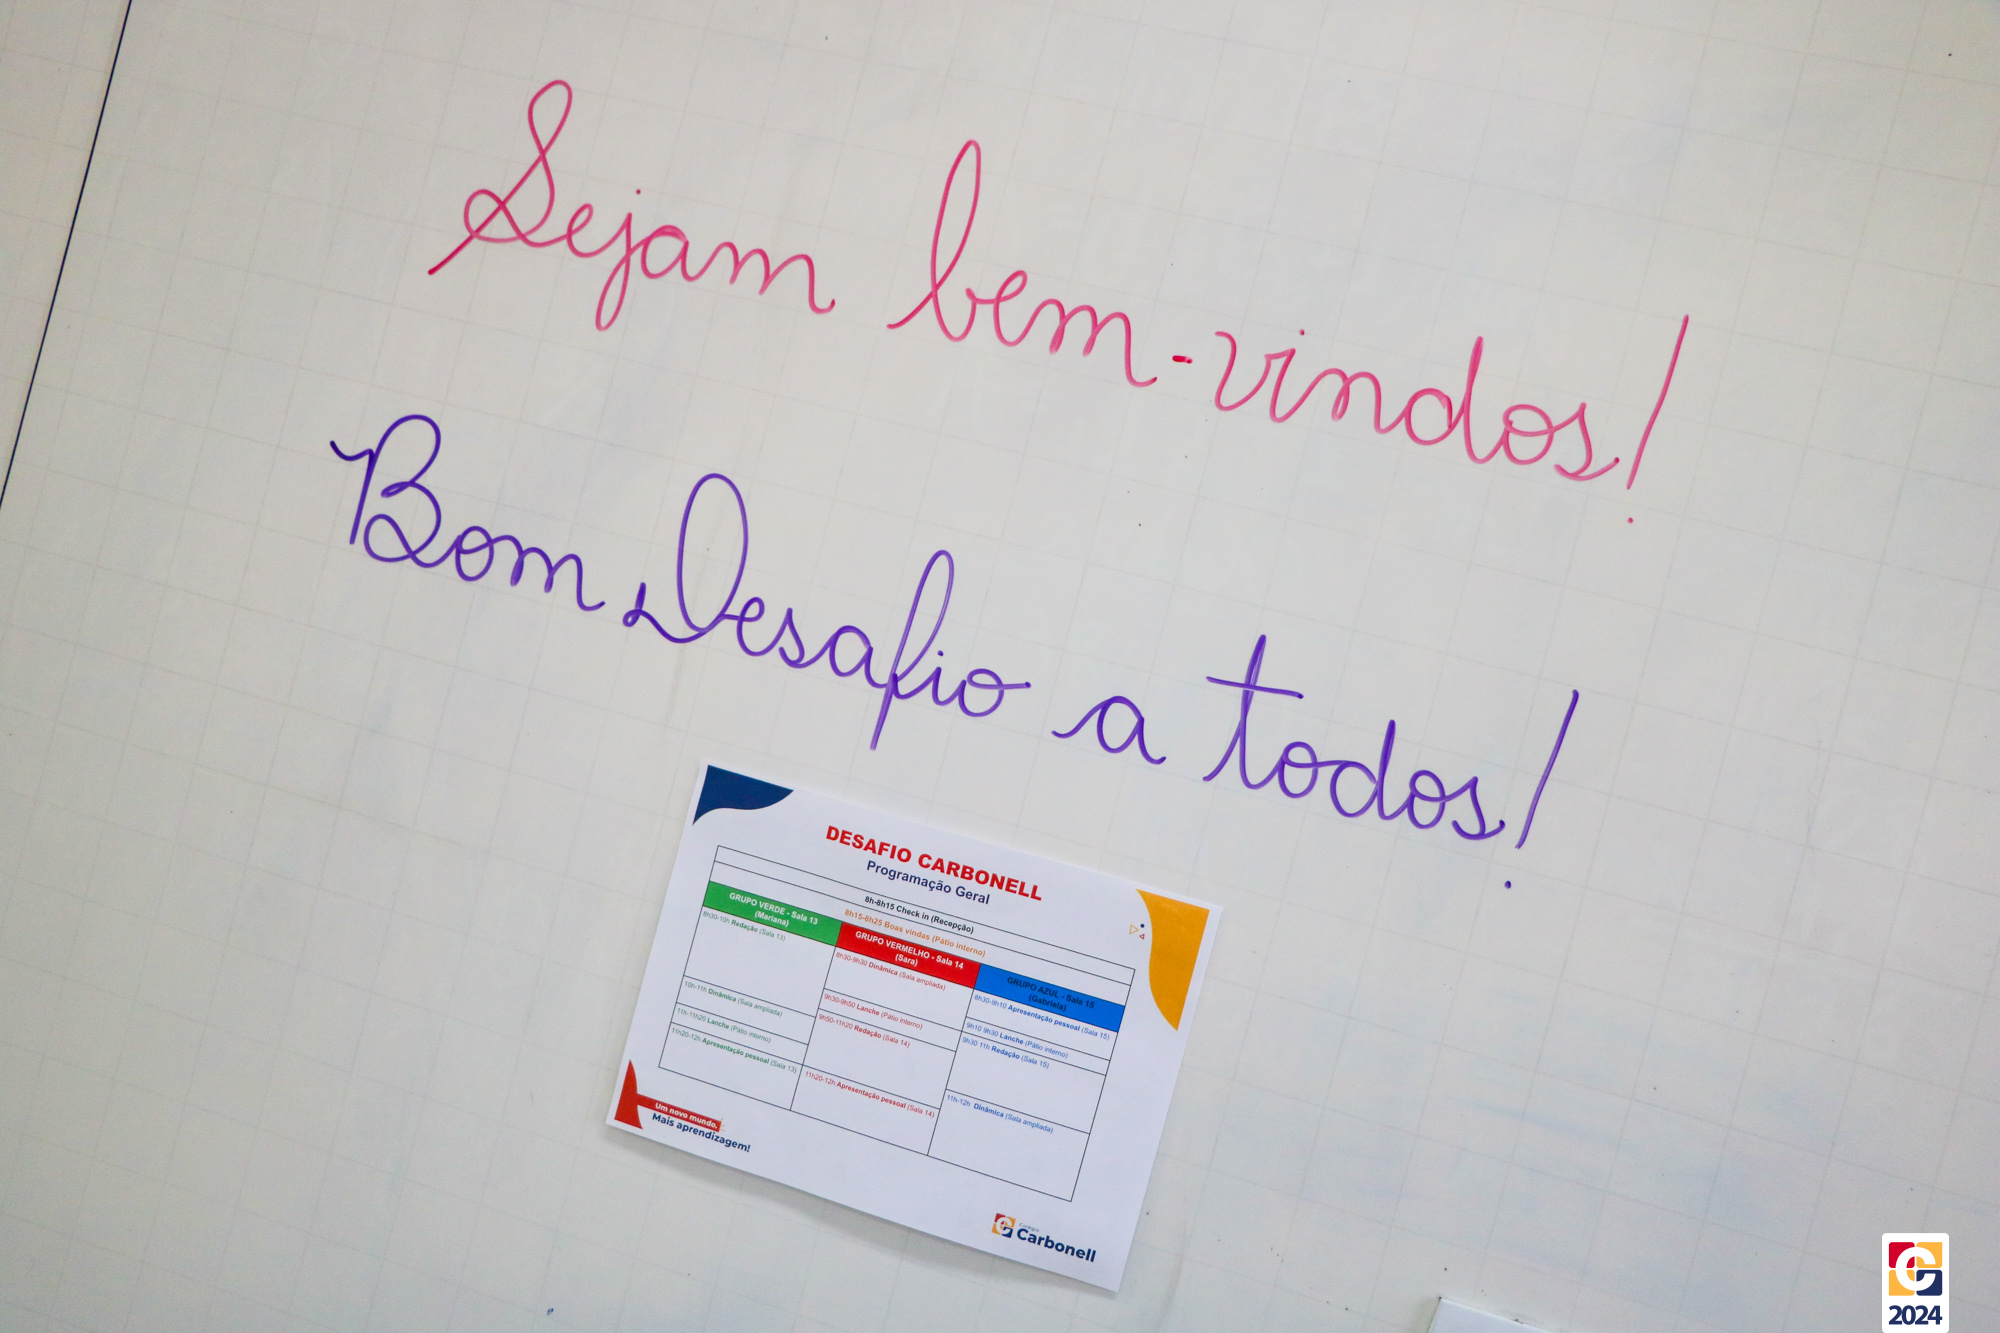 Sejam bem-vindos!
Bom Desafio a todos!
DESAFIO CARBONELL
Programação Geral
8h-8h15 Check in (Recepção)
8h15-8h25 Boas vindas (Pátio interno)
GRUPO VERDE - Sala 13
(Mariana)
8h30-10h Redação (Sala 13)
10h-11h Dinâmica (Sala ampliada)
11h-11h20 Lanche (Pátio interno)
11h20-12h Apresentação pessoal (Sala 13)
GRUPO VERMELHO - Sala 14
(Sara)
8h30-9h30 Dinâmica (Sala ampliada)
9h30-9h50 Lanche (Pátio interno)
9h50-11h20 Redação (Sala 14)
11h20-12h Apresentação pessoal (Sala 14)
GRUPO AZUL - Sala 15
(Gabriela)
8h30-9h10 Apresentação pessoal (Sala 15)
9h10 9h30 Lanche (Pátio interno)
9h30 11h Redação (Sala 15)
11h-12h Dinâmica (Sala ampliada)
Um novo mundo.
Mais aprendizagem!
Colégio
Carbonell
2024